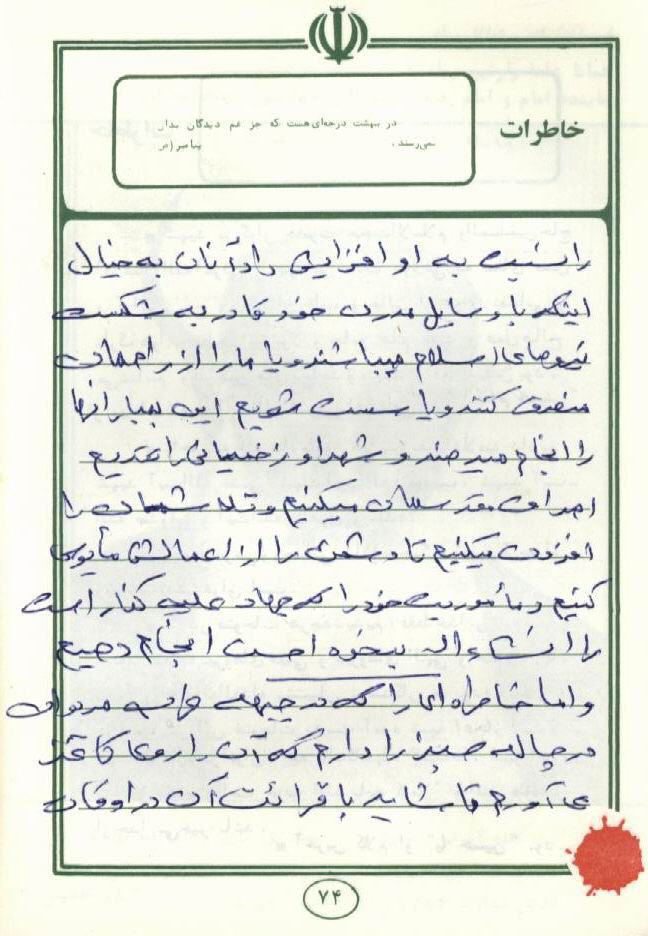 خاطرات
در بهشت درجه‌ای هست که جز غم دیدگان بدان
نمی‌رسند. پیامبر (ص)
را نسبت به او افزایش داد آنان به خیال
اینکه با وسایل مدرن خود قادر به شکست
نیروهای اسلام میباشند و یا ما را از راهمان
منصرف کنند و یا سست شویم این بمبارانها
را انجام میدهند و شهدا و زخمیهائی را تقدیم
اهداف مقدسمان میکنیم و تلاشمان را
افزون میکنیم تا دشمن را از اعمالش مأیوس
کنیم و مأموریت خود را که جهاد علیه کفار است
را انشاءاله بنحوه احسن انجام دهیم
و اما خاطره‌ای را که در جبهه
در چاله را دارم که آن را روی کاغذ
می‌آورم تا شاید با قرائت آن در اوقات
۷۴